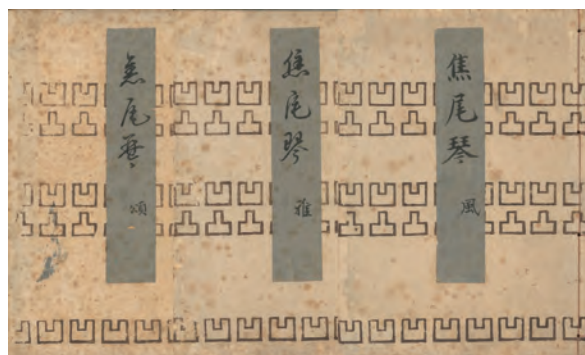 焦尾琴
風
焦尾琴
雅
焦尾琴
頌